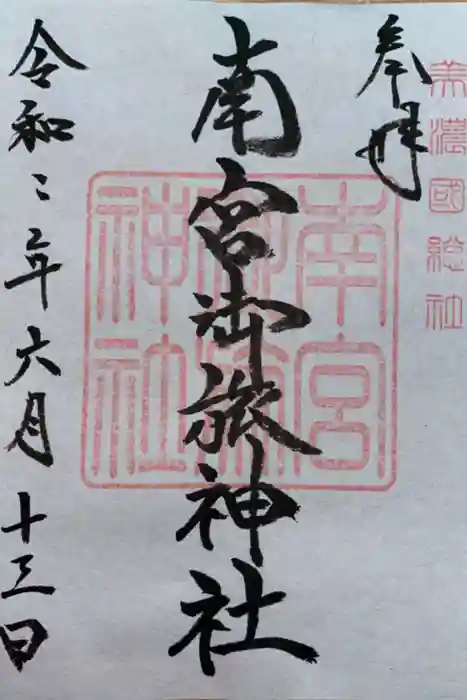 美濃國総社
奉拝
南宮御旅神社
南宮御旅神社
令和二年六月十三日